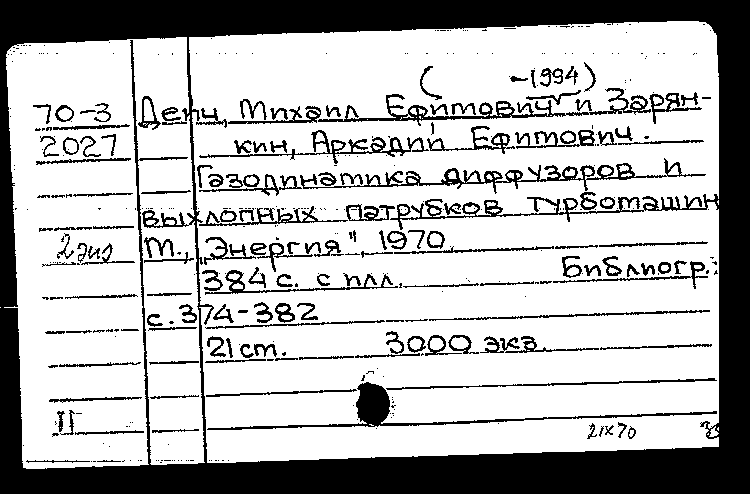 ( -1994)
70-3 Дейч, Михаил Ефимович и Зарян-
2027 кин, Аркадий Ефимович.
Газодинамика диффузоров и
выхлопных патрубков турбомашин
2 экз М., „Энергия", 1970.
384 с. с илл. Библиогр.:
с. 374-382
21 см. 3000 экз.
II
21X70